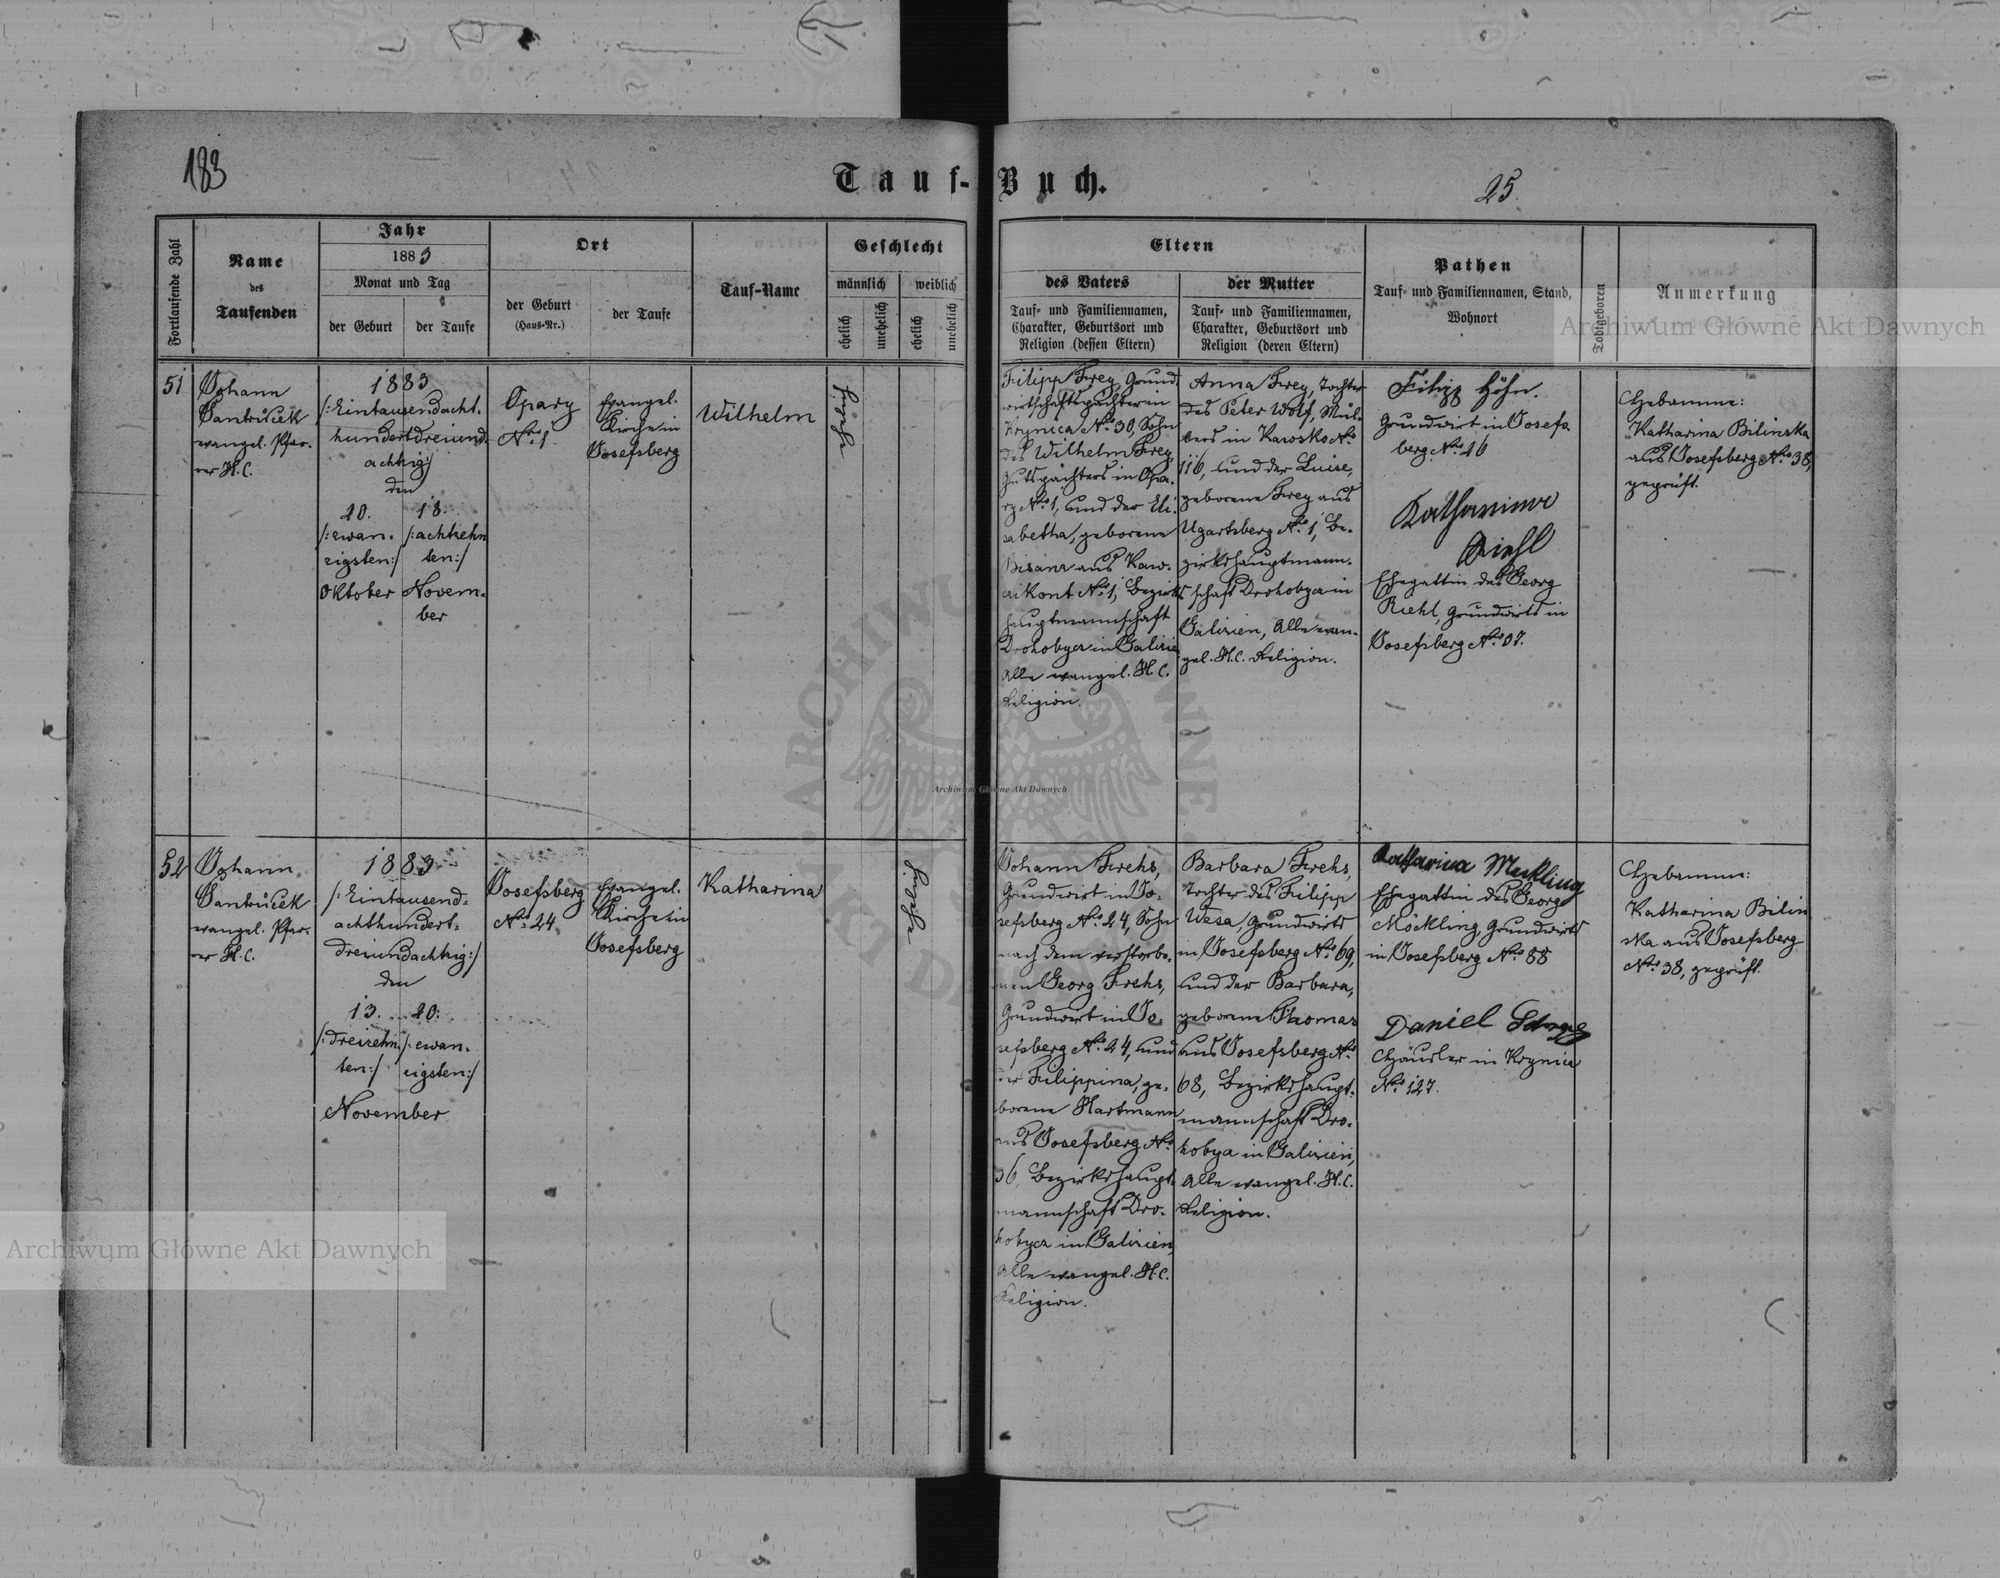 183
Tauf-Buch.
25.
Fortlaufende Zahl
Name
des
Taufenden
Jahr
1883
Monat und Tag
der Geburt
der Taufe
Ort
der Geburt
(Haus-Nr.)
der Taufe
Tauf-Name
Geschlecht
männlich
weiblich
ehelich
unehelich
ehelich
unehelich
Eltern
des Vaters
Tauf- und Familiennamen,
Charakter, Geburtsort und
Religion (dessen Eltern)
der Mutter
Tauf- und Familiennamen,
Charakter, Geburtsort und
Religion (deren Eltern)
Pathen
Tauf- und Familiennamen, Stand,
Wohnort
Todtgeboren
Anmerkung
Archiwum Główne Akt Dawnych
51
Johann
evangel. Pfar-
rer H.C.
1883
/:Eintausendacht-
hundertdreiund-
achtzig:/
den
20.
/:zwan-
zigsten:/
Oktober
18.
/:achtzehn
ten:/
Novem-
ber
Opary
Nro 1
Evangel.
Kirche in
Josefsberg
Wilhelm
Filipp Frey, Grund-
wirtschaftspächter in
Krynica Nro 30, Sohn
des Wilhelm Frey
Gutspächters in Opa-
ry Nro 1, und der Eli-
sabetha, geborene
Bisanz aus Kaw-
Nro 1, Bezirks
hauptmannschaft
Drohobycz in Galizien
Alle evangel. H.C.
Religion.
Anna Frey, Tochter
des Peter Wolf, Mül-
lers in Nro
116, und der Luise,
geborene Frey aus
Ugartsberg Nro 1, Be-
zirkshauptmann-
schaft Drohobycz in
Galizien, Alle evan-
gel. H.C. Religion.
Filipp Höhn.
Grundwirt in Josefs-
berg Nro 26
Katharina
Riehl
Ehegattin des Georg
Riehl, Grundwirts in
Josefsberg Nro 37.
Hebamme:
Katharina Bilinska
aus Josefsberg Nro 38,
geprüft.
52
Johann
evangel. Pfar-
rer H.C.
1883
/:Eintausend-
achthundert-
dreiundachtzig:/
den
13.
20.
/:dreizehn
ten:/
/:zwan-
zigsten:/
November
Josefsberg
Nro 24
Evangel.
Kirche in
Josefsberg
Katharina
Johann Frehs,
Grundwirt in Jo-
sefsberg Nro 24, Sohn
nach dem verstorbe-
nen Georg Frehs,
Grundwirt in Jo-
sefsberg Nro 24, und
der Filippina, ge-
borene Hartmann
aus Josefsberg Nro
36, Bezirkshaupt-
mannschaft Dro-
hobycz in Galizien,
Alle evangel. H.C.
Religion.
Barbara Frehs,
Tochter des Filipp
Wesa, Grundwirts
in Josefsberg Nro 69,
und der Barbara,
geborene Thomas
aus Josefsberg Nro
68, Bezirkshaupt-
mannschaft Dro-
hobycz in Galizien,
Alle evangel. H.C.
Religion.
Katharina Meckling
Ehegattin des Georg
Möckling, Grundwirts
in Josefsberg Nro 88
Daniel
Häusler in Krynica
Nro 127.
Hebamme:
Katharina Bilin
ska aus Josefsberg
Nro 38, geprüft.
Archiwum Główne Akt Dawnych
Archiwum Główne Akt Dawnych